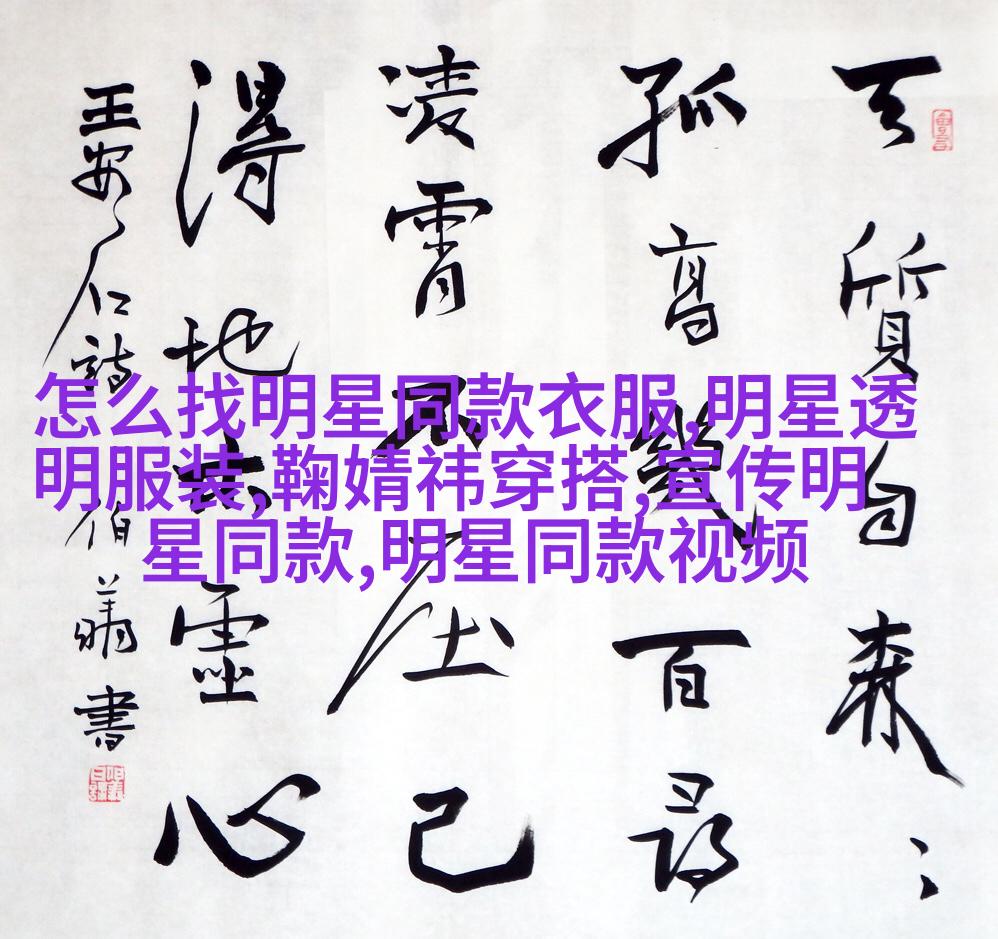 天質自森〻
孤高幾百尋
凌霄不屈己
得地本虛心
王安石詩 伯 書
怎么找明星同款衣服,明星透
明服装,鞠婧祎穿搭,宣传明
星同款,明星同款视频